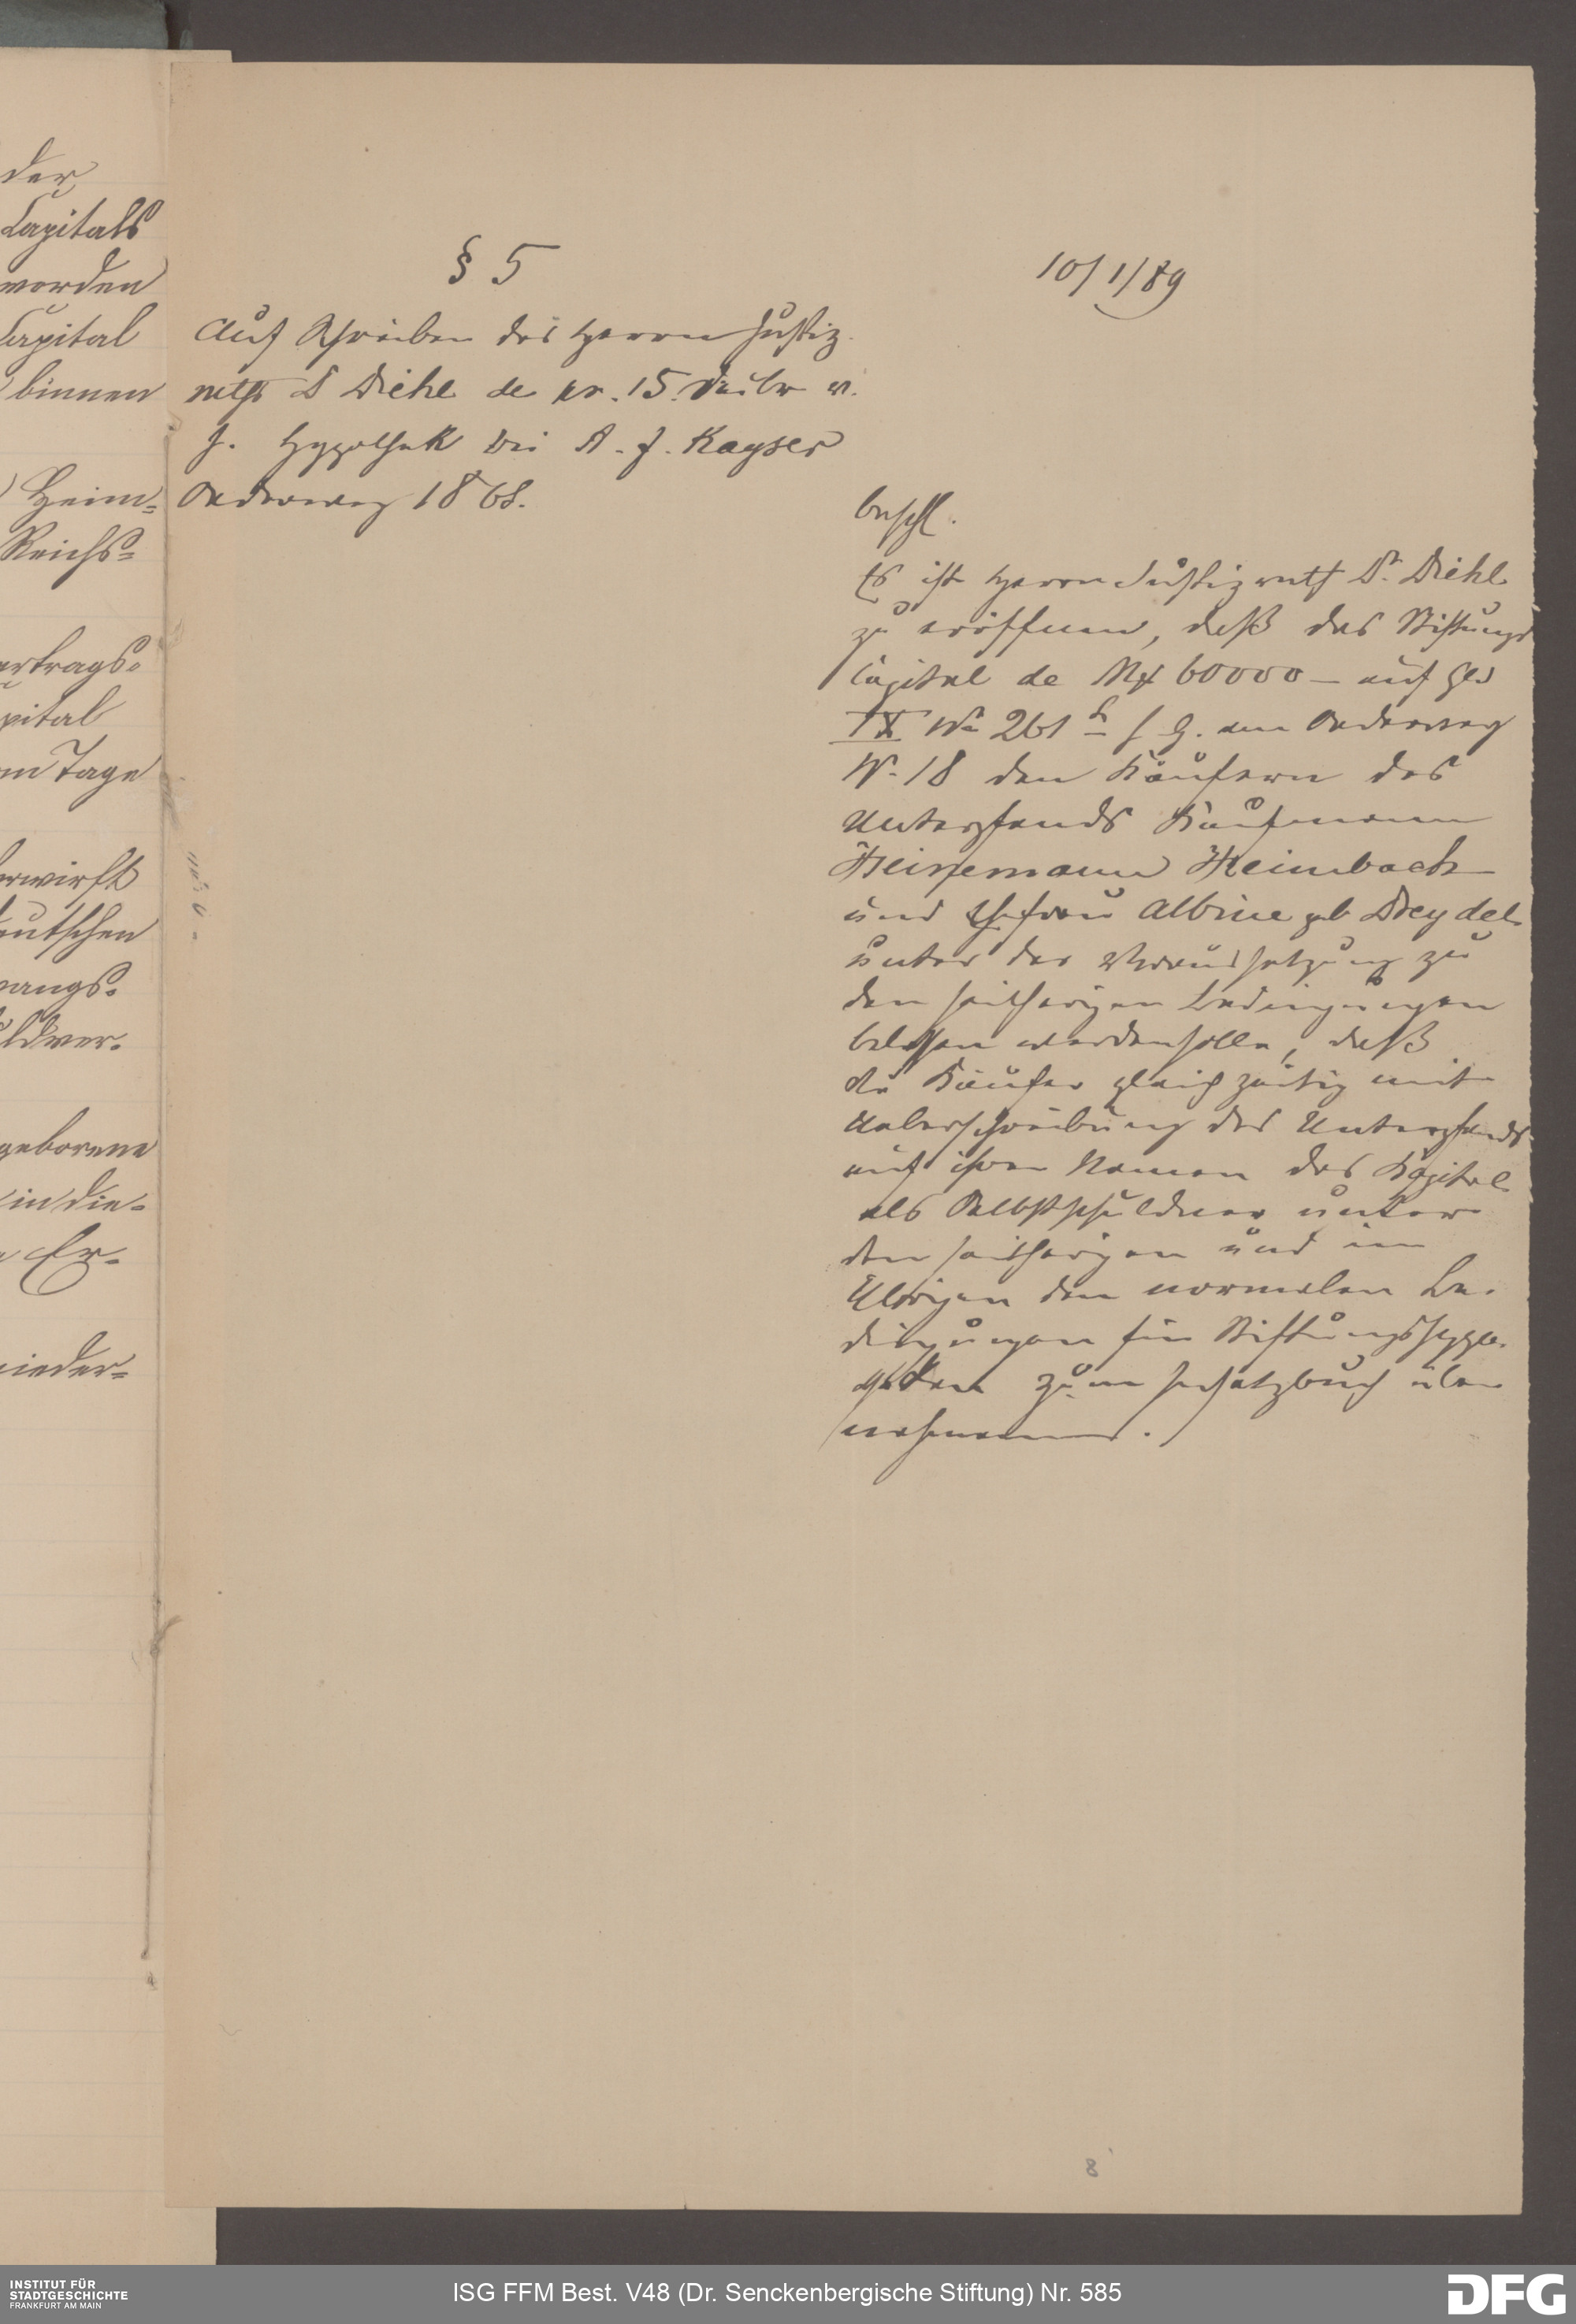 der
Capitals
worden
Capital
binnen
Heim=
Reichs=
ertrags=
pital
m Tage
erwirft
eutschen
wangs=
uldver=
geborene
in die=
Er=
nieder=
§ 5
10/1/89
Auf Schreiben des Herrn Justiz
raths D Diehl de pr. 15. Dezbr v.
J. Hypothek bei A. J. Kayser
Oederweg 18 68.
beschl.
Es ist Herrn Justizrath Dr. Diehl
zu eröffnen, daß das Stiftungs
Capital de Mk 60000 – auf Gew
IX No 261 f G. am Oederweg
No. 18 den Käufern des
Unterpfands Kaufmann
Heinemann Heimbach
und Ehefrau Albine geb Dreydel
unter der Voraussetzung zu
den seitherigen Bedingungen
belassen werden solle, daß
die Käufer gleichzeitig mit
Ueberschreibung des Unterpfands
auf ihren Namen das Kapital
als Selbstschuldner unter
den seitherigen und im
Übrigen den normalen Be-
dingungen für Stiftungshypo-
theken zum Insatzbuch über
nehmen.
8
INSTITUT FÜR
STADTGESCHICHTE
FRANKFURT AM MAIN
ISG FFM Best. V48 (Dr. Senckenbergische Stiftung) Nr. 585
DFG